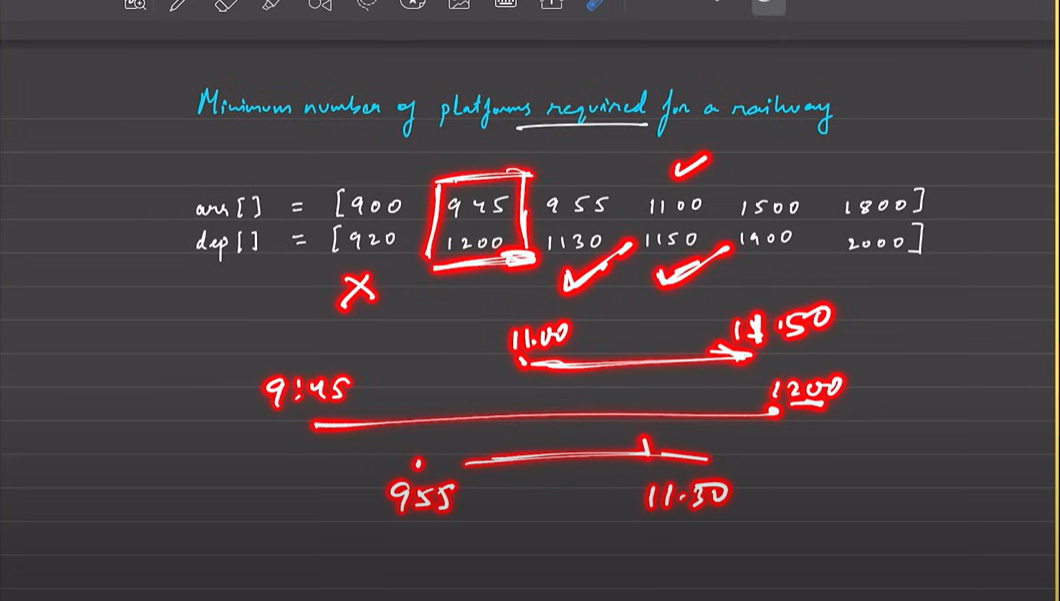 Minimum number of platforms required for a railway
arr[] = [900 945 955 1100 1500 1800]
dep[] = [920 1200 1130 1150 1900 2000]
11.00
.50
9:45
1200
955
11.30